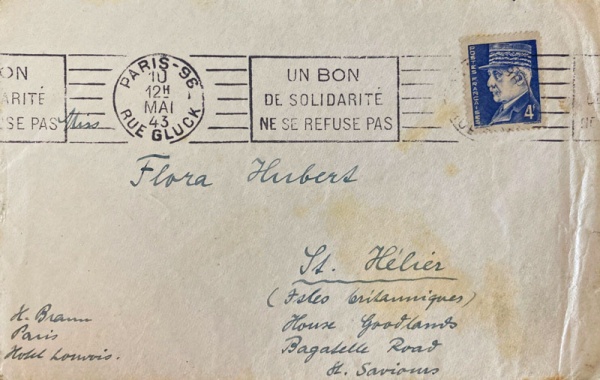 ON
ARITÉ
SE PAS
PARIS-96
10
12H
MAI
43
RUE GLUCK
UN BON
DE SOLIDARITÉ
NE SE REFUSE PAS
POSTES FRANCAISES
4F
Miss
Flora Hubert
St. Hélier
(Isles britanniques)
House Goodlands
Bagatelle Road
St. Saviours
H. Braun
Paris
Hotel Louvois.